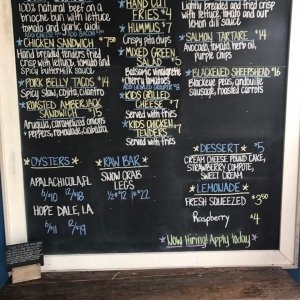 100% natural beef on a
brioche bun with lettuce
tomato and garlic aioli
CHICKEN SANDWICH $7.50
Hand breaded tenders fried
crisp with lettuce, tomato and
spicy buttermilk sauce
PORK BELLY TACOS $14
Spicy Slaw, cojita, cilantro
ROASTED AMBERJACK
SANDWICH $16
Arugula, caramelized onions
peppers, remoulade, ciabatta
HAND CUT
FRIES $4
HUMMUS $7
Crispy pita chips
MIXED GREEN
SALAD $5
Balsamic vinaigrette
Cherry tomatoes
KIDS GRILLED
CHEESE $7
Served with fries
KIDS CHICKEN $7
TENDERS
Served with fries
Lightly breaded and fried crisp
with lettuce, tomato and our
lemon dill sauce
SALMON TARTARE $14
Avocado, tomato, herb oil,
Purple chips
BLACKENED SHEEPSHEAD $16
Blackeye peas, andouille
Sausage, roasted carrots
OYSTERS
APALACHICOLA, FL
6/$10 12/$18
HOPE DALE, LA
6/$11 12/$19
RAW BAR
SNOW CRAB
LEGS
1/2# $12 1# $22
DESSERT $5
CREAM CHEESE POUND CAKE,
STRAWBERRY COMPOTE,
SWEET CREAM
LEMONADE
FRESH SQUEEZED $3.50
Raspberry $4
Now Hiring! Apply today